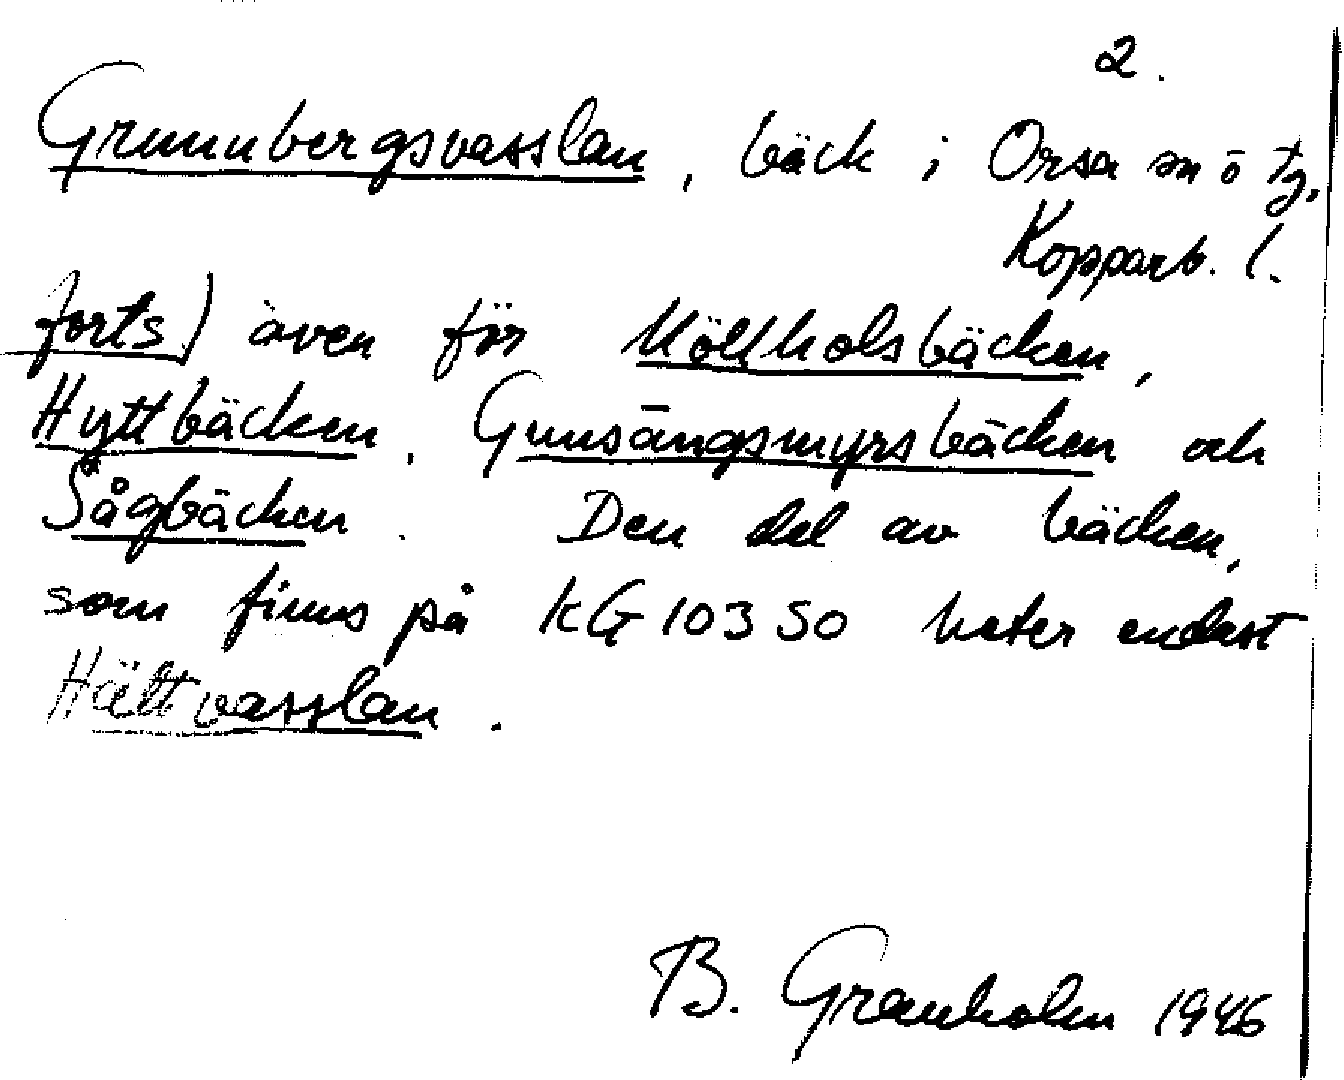 2.
Grunnbergsvasslan, bäck i Orsa sn ö tg.
Kopparb. l.
forts) även för Kölkholsbäcken,
Hyttbäcken, Gunsängsmyrsbäcken och
Sågbäcken. Den del av bäcken,
som finns på KG 10350 heter endast
Hältvasslan.
B. Granholm 1946